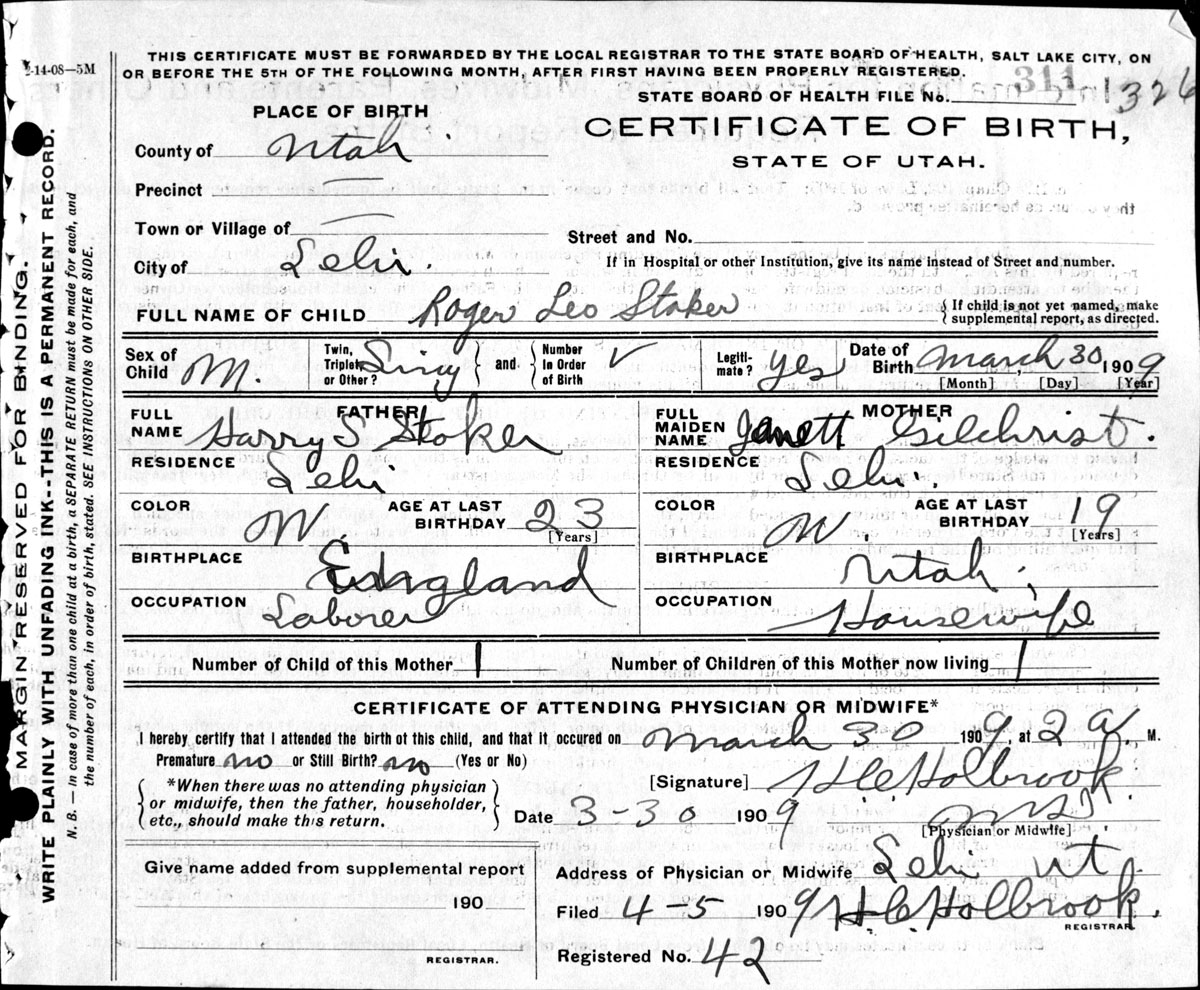 2-14-08—5M
THIS CERTIFICATE MUST BE FORWARDED BY THE LOCAL REGISTRAR TO THE STATE BOARD OF HEALTH, SALT LAKE CITY, ON
OR BEFORE THE 5TH OF THE FOLLOWING MONTH, AFTER FIRST HAVING BEEN PROPERLY REGISTERED.
STATE BOARD OF HEALTH FILE No. 311 1326
PLACE OF BIRTH
CERTIFICATE OF BIRTH,
STATE OF UTAH.
County of Utah
Precinct —
Town or Village of —
Street and No.
City of Lehi.
If in Hospital or other Institution, give its name instead of Street and number.
FULL NAME OF CHILD Roger Leo Stoker
{ If child is not yet named, make
supplemental report, as directed.
Sex of Child M.
Twin, Triplet, or Other?
and
Number in Order of Birth
Legiti-mate? yes
Date of Birth March 30 1909
[Month] [Day] [Year]
FATHER
FULL NAME Harry S Stoker
MOTHER
FULL MAIDEN NAME Janett Gilchrist.
RESIDENCE Lehi
RESIDENCE Lehi.
COLOR W.
AGE AT LAST BIRTHDAY 23
[Years]
COLOR W.
AGE AT LAST BIRTHDAY 19
[Years]
BIRTHPLACE England
BIRTHPLACE Utah.
OCCUPATION Laborer
OCCUPATION Housewife
Number of Child of this Mother 1
Number of Children of this Mother now living 1
CERTIFICATE OF ATTENDING PHYSICIAN OR MIDWIFE*
I hereby certify that I attended the birth of this child, and that it occurred on March 30 1909, at 2 a M.
Premature no or Still Birth? no (Yes or No)
[Signature] H C Holbrook
*When there was no attending physician
or midwife, then the father, householder,
etc., should make this return.
Date 3-30 1909
[Physician or Midwife]
Give name added from supplemental report
190
REGISTRAR.
Address of Physician or Midwife Lehi Ut
Filed 4-5 1909 H. C. Holbrook.
REGISTRAR
Registered No. 42
MARGIN RESERVED FOR BINDING.
WRITE PLAINLY WITH UNFADING INK--THIS IS A PERMANENT RECORD.
N. B. — In case of more than one child at a birth, a SEPARATE RETURN must be made for each, and
the number of each, in order of birth, stated. SEE INSTRUCTIONS ON OTHER SIDE.